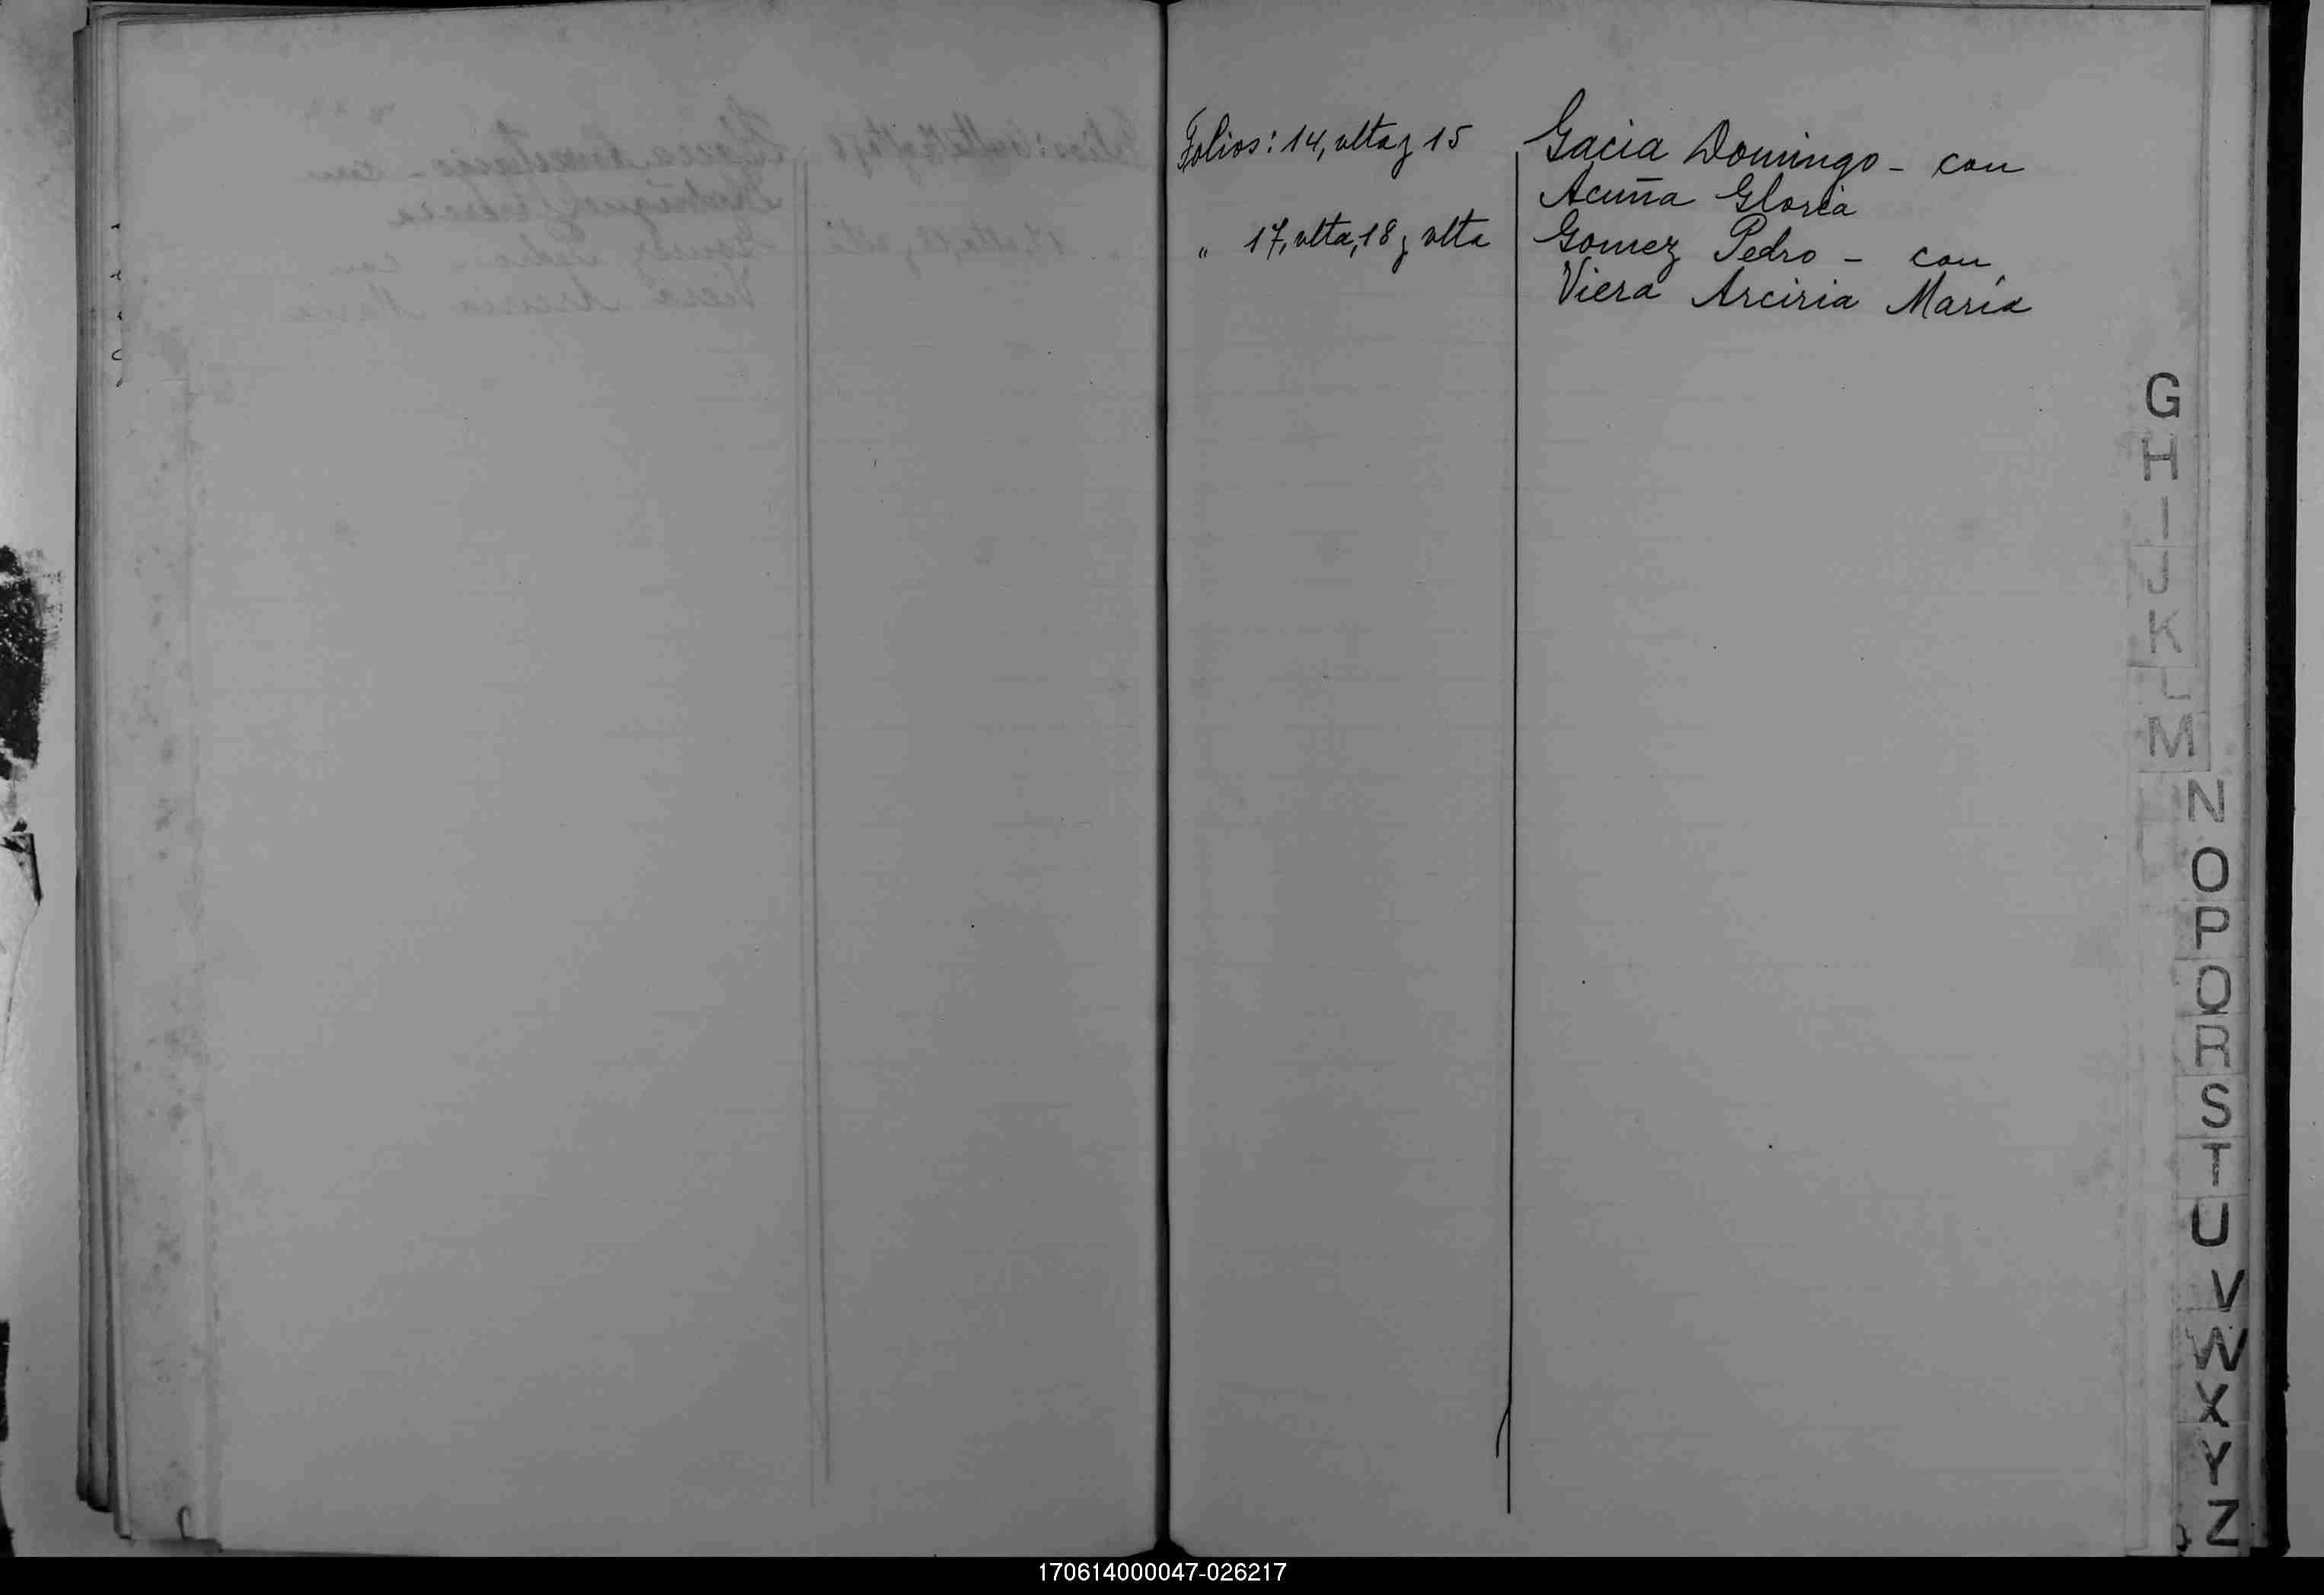 Folios: 14, vlta y 15 Gacia Domingo - con
Acuña Gloria
" 17, vlta, 18 y vlta Gomez Pedro - con
Viera Arciria María
G
H
I
J
K
L
M
N
O
P
Q
R
S
T
U
V
W
X
Y
Z
170614000047-026217